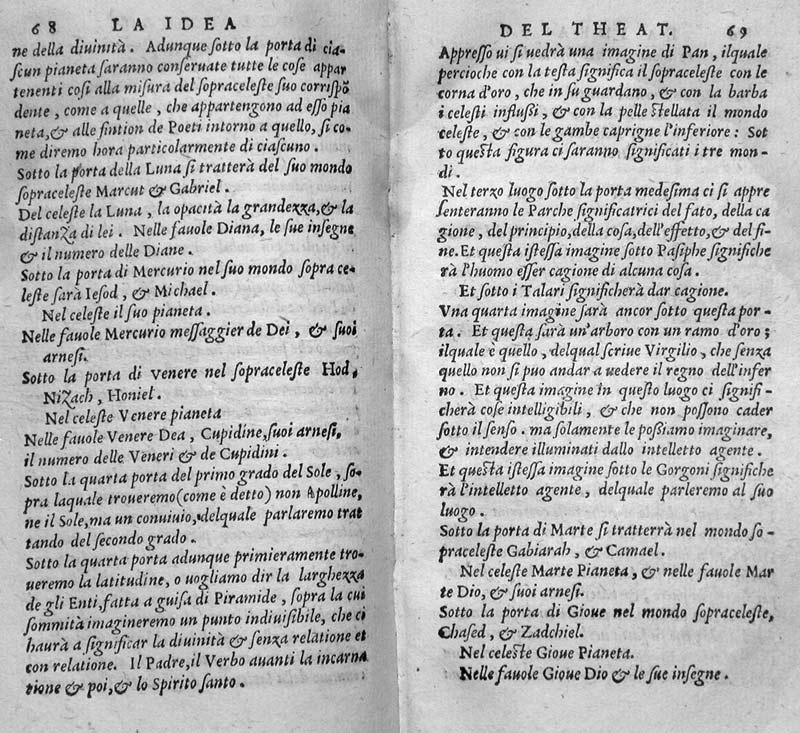 68 LA IDEA
ne della diuinità. Adunque ſotto la porta di cia-
ſcun pianeta ſaranno conſeruate tutte le coſe appar
tenenti coſi alla miſura del ſopraceleſte ſuo corriſpõ
dente, come a quelle, che appartengono ad eſſo pia
neta, & alle fintion de Poeti intorno a quello, ſi co-
me diremo hora particolarmente di ciaſcuno.
Sotto la porta della Luna ſi tratterà del ſuo mondo
ſopraceleſte Marcut & Gabriel.
Del celeſte la Luna, la opacità la grandezza, & la
diſtanza di lei. Nelle fauole Diana, le ſue inſegne
& il numero delle Diane.
Sotto la porta di Mercurio nel ſuo mondo ſopra ce-
leſte ſarà Ieſod, & Michael.
Nel celeſte il ſuo pianeta.
Nelle fauole Mercurio meſſaggier de Dei, & ſuoi
arneſi.
Sotto la porta di Venere nel ſopraceleſte Hod,
Nizach, Honiel.
Nel celeſte Venere pianeta
Nelle fauole Venere Dea, Cupidine, ſuoi arneſi,
il numero delle Veneri & de Cupidini.
Sotto la quarta porta del primo grado del Sole, ſo-
pra laquale troueremo (come è detto) non Apolline,
ne il Sole, ma un conuiuio, delquale parlaremo trat
tando del ſecondo grado.
Sotto la quarta porta adunque primieramente tro-
ueremo la latitudine, o uogliamo dir la larghezza
de gli Enti, fatta a guiſa di Piramide, ſopra la cui
ſommità imagineremo un punto indiuiſibile, che ci
haurà a ſignificar la diuinità & ſenza relatione et
con relatione. Il Padre, il Verbo auanti la incarna
tione & poi, & lo Spirito ſanto.
DEL THEAT. 69
Appreſſo ui ſi uedrà una imagine di Pan, ilquale
percioche con la teſta ſignifica il ſopraceleſte con le
corna d'oro, che in ſu guardano, & con la barba
i celeſti influſſi, & con la pelle ſtellata il mondo
celeſte, & con le gambe caprigne l'inferiore: Sot
to queſta figura ci ſaranno ſignificati i tre mon-
di.
Nel terzo luogo ſotto la porta medeſima ci ſi appre
ſenteranno le Parche ſignificatrici del fato, della ca
gione, del principio, della coſa, dell'effetto, & del fi-
ne. Et queſta iſteſſa imagine ſotto Paſiphe ſignifiche
rà l'huomo eſſer cagione di alcuna coſa.
Et ſotto i Talari ſignificherà dar cagione.
Vna quarta imagine ſarà ancor ſotto queſta por-
ta. Et queſta ſarà un'arboro con un ramo d'oro;
ilquale è quello, delqual ſcriue Virgilio, che ſenza
quello non ſi puo andar a uedere il regno dell'infer
no. Et queſta imagine in queſto luogo ci ſignifi-
cherà coſe intelligibili, & che non poſſono cader
ſotto il ſenſo. ma ſolamente le poſſiamo imaginare,
& intendere illuminati dallo intelletto agente.
Et queſta iſteſſa imagine ſotto le Gorgoni ſignifiche
rà l'intelletto agente, delquale parleremo al ſuo
luogo.
Sotto la porta di Marte ſi tratterrà nel mondo ſo-
praceleſte Gabiarah, & Camael.
Nel celeſte Marte Pianeta, & nelle fauole Mar
te Dio, & ſuoi arneſi.
Sotto la porta di Gioue nel mondo ſopraceleſte,
Chaſed, & Zadchiel.
Nel celeſte Gioue Pianeta.
Nelle fauole Gioue Dio & le ſue inſegne.